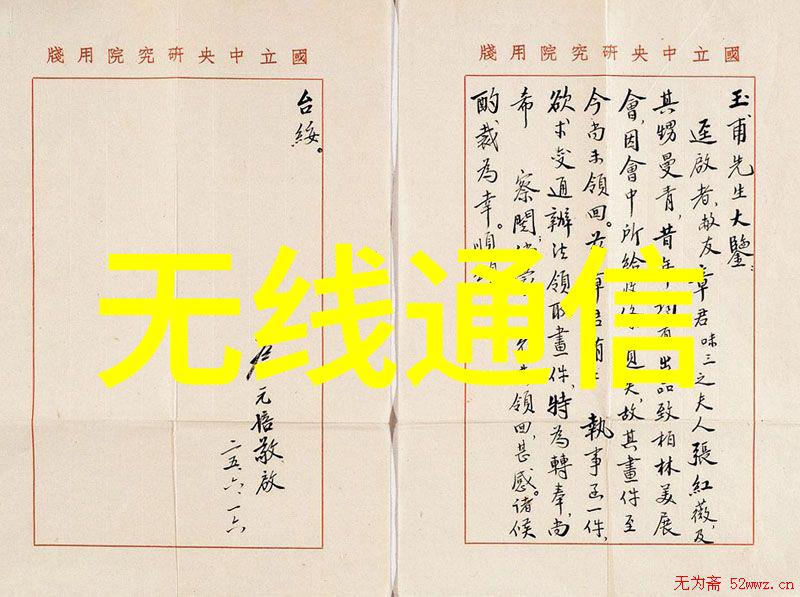 國立中央研究院用牋
玉甫先生大鑒:
逕啟者,敝友章君味三之夫人張紅薇,及
其甥曼青,昔年 有出品致柏林美展
會,因會中所給 失,故其畫件至
今尚未領回。 君 執事函一件,
欲求变通辦法領取畫件,特為轉奉,尚
希 察閱, 領回,甚感。諸候
酌裁為幸。順
國立中央研究院用牋
台綏。
元培敬啟
二五、六、一六
无线通信
无为斋 52wwz.cn